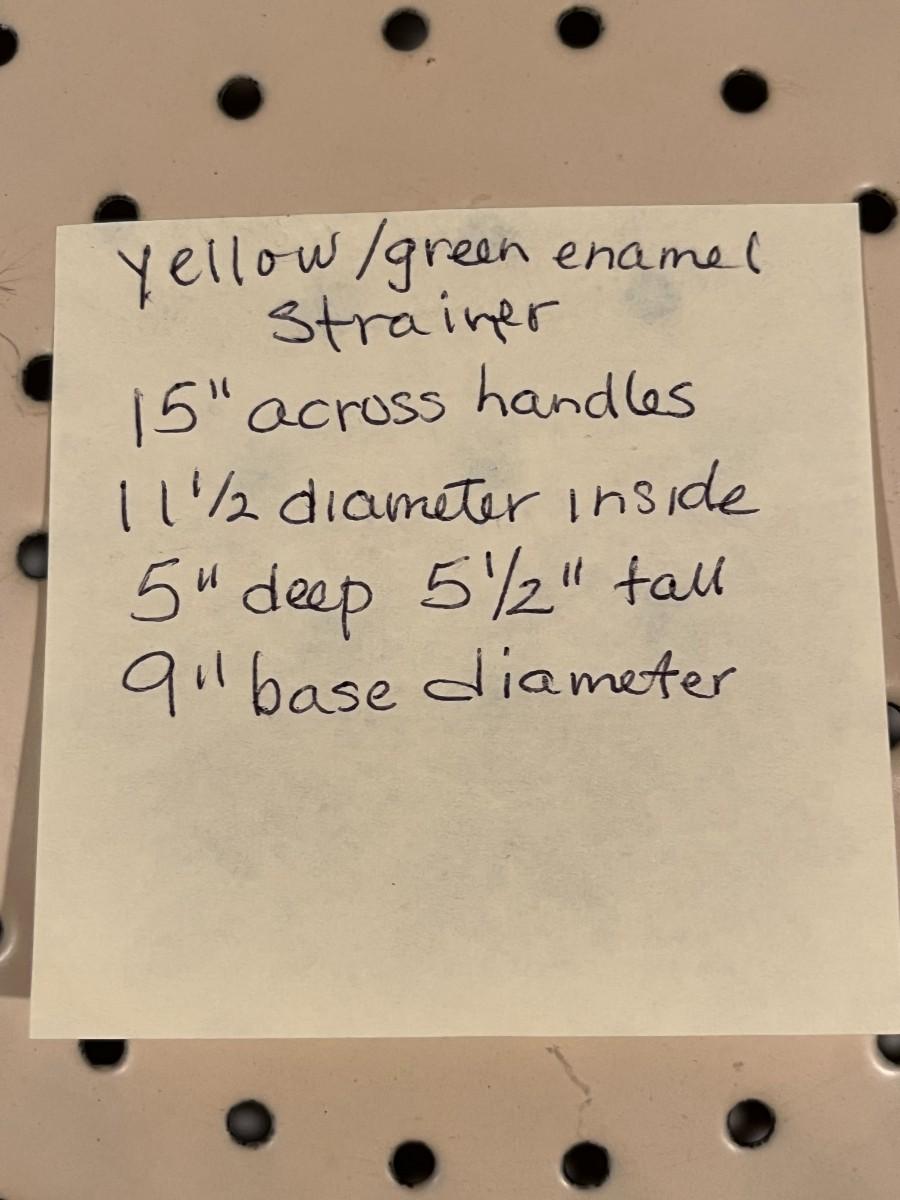 Yellow/green enamel
Strainer
15" across handles
11 1/2 diameter inside
5" deep 5 1/2" tall
9" base diameter